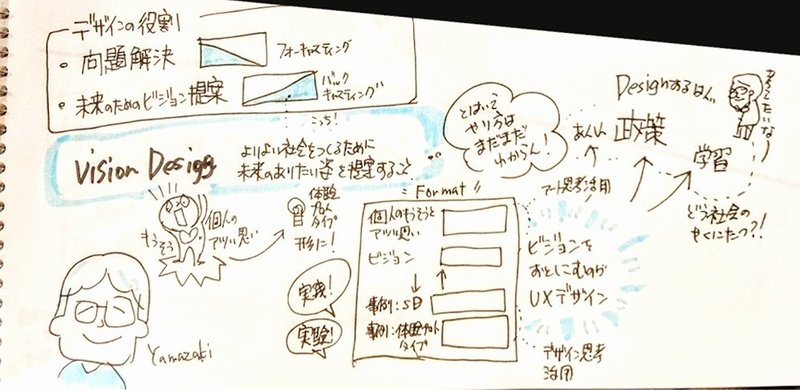 デザインの役割
・問題解決
フォーキャスティング
・未来のためのビジョン提案
バック
キャスティング
こっち!
Vision Design
よりよい社会をつくるために
未来のありたい姿を提案すること
とはいって
やり方は
まだまだ
わからん!
Designするはんい
政策
学習
あんしん
どう社会の
やくにたつ?!
もうそう
個人の
アツい思い
体験
プロト
タイプ
形に!
Format
個人のもうそうと
アツい思い
ビジョン
事例:SD
事例:体験プロト
タイプ
実践!
実験!
アート思考活用
ビジョンを
おとしこむのが
UXデザイン
デザイン思考
活用
Yamazaki